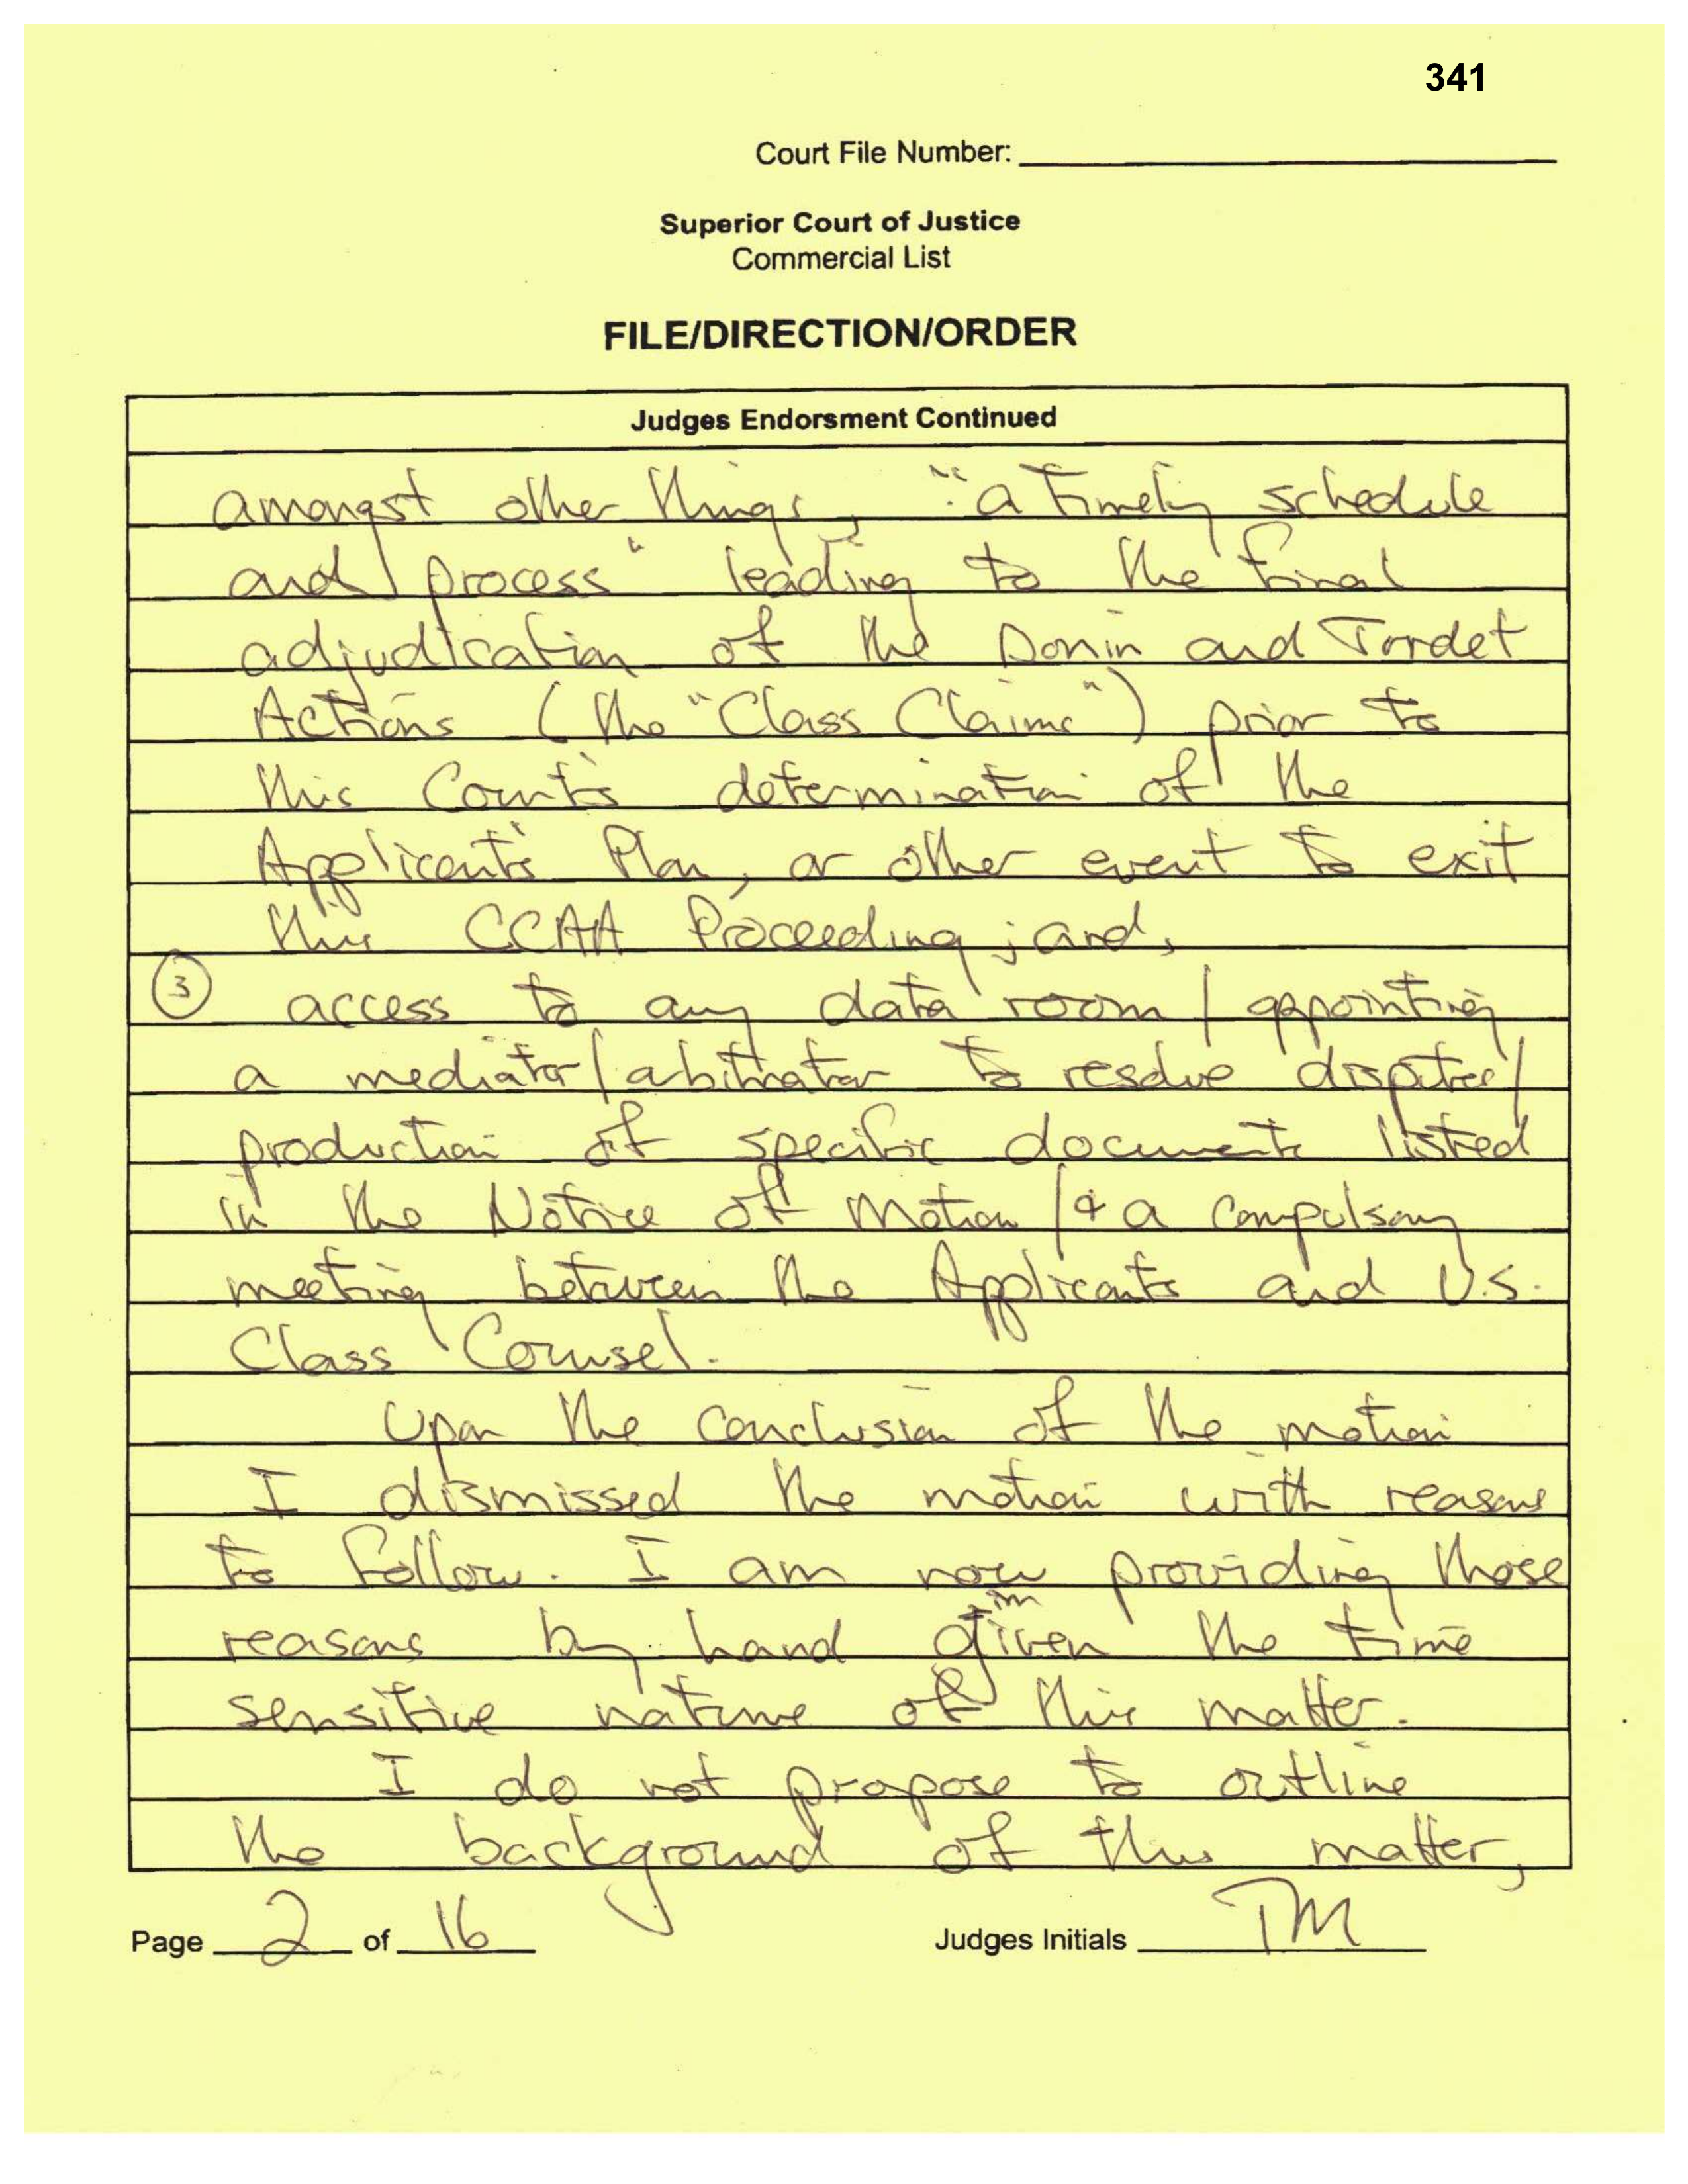 341
Court File Number:
Superior Court of Justice
Commercial List
FILE/DIRECTION/ORDER
Judges Endorsment Continued
amongst other things, "a timely schedule
and process" leading to the final
adjudication of the Donin and Jordet
Actions (the "Class Claims") prior to
this Court's determination of the
Applicant's Plan, or other event to exit
this CCAA Proceeding; and,
③ access to any data room / appointing
a mediator/arbitrator to resolve disputes/
production of specific documents listed
in the Notice of Motion / & a compulsory
meeting between the Applicants and U.S.
Class Counsel.
Upon the conclusion of the motion
I dismissed the motion with reasons
to follow. I am now providing those
reasons by hand given the time
sensitive nature of this matter.
I do not propose to outline
the background of this matter,
Page 2 of 16
Judges Initials TM